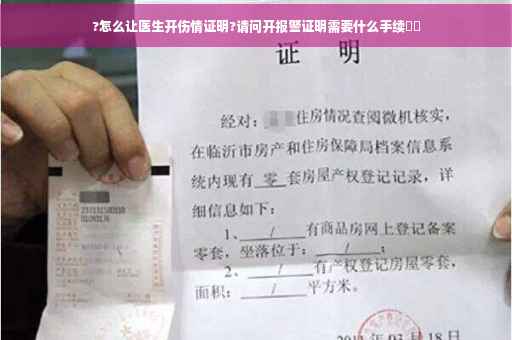 ?怎么让医生开伤情证明?请问开报警证明需要什么手续
证 明
经对: 住房情况查阅微机核实,
在临沂市房产和住房保障局档案信息系
统内现有 零 套房屋产权登记记录,详
细信息如下:
1、 / 有商品房网上登记备案
零套,坐落位于: / ;
2、 / 有产权登记房屋零套,
面积: / 平方米。
03 月 18 日